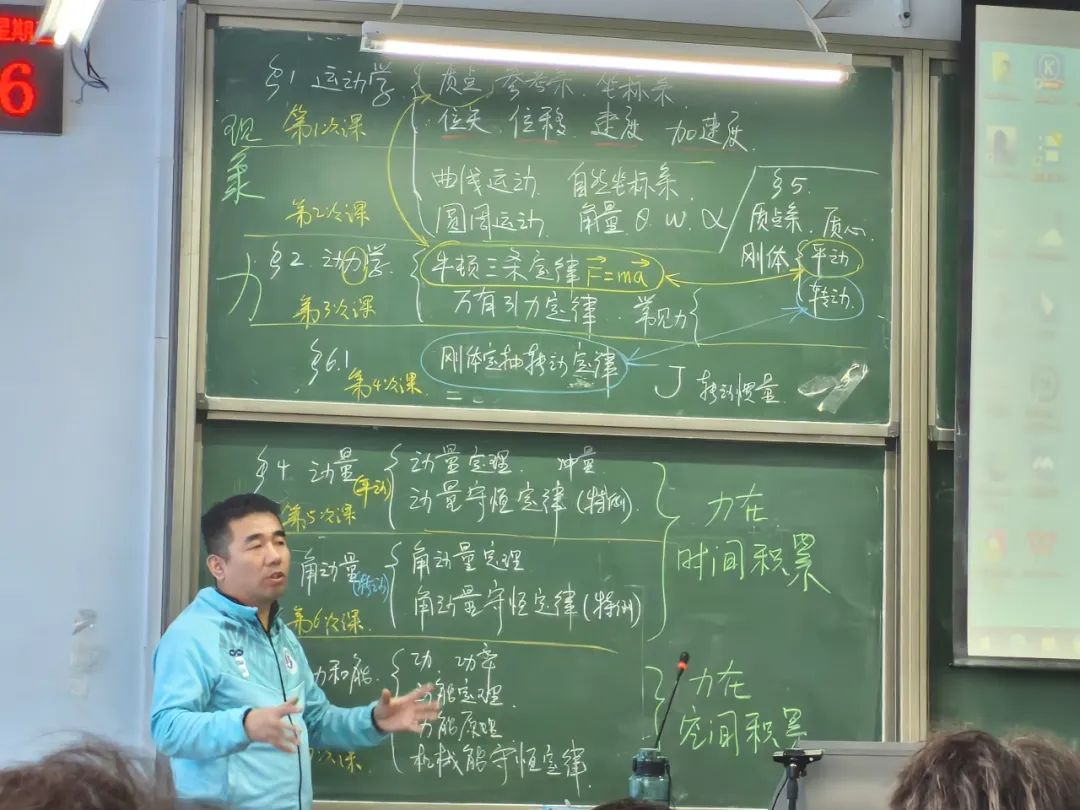 星期
6
§1 运动学 质点 参考系 坐标系
现象
第1次课
位矢 位移 速度 加速度
曲线运动 自然坐标系
第2次课
圆周运动 角量 θ. ω. α
§5.
质点系. 质心.
刚体 平动
转动.
力
§2. 动力学
牛顿三条定律 F=ma
第3次课
万有引力定律. 常见力
§6.1
第4次课
刚体定轴转动定律
J 转动惯量
§4. 动量 (平动)
动量定理. 冲量.
第5次课
动量守恒定律 (特例).
力在
时间积累
角动量 (转动)
角动量定理
角动量守恒定律 (特例)
第6次课.
力和能.
功. 功率
动能定理.
功能原理
次课.
机械能守恒定律.
力在
空间积累
K
W